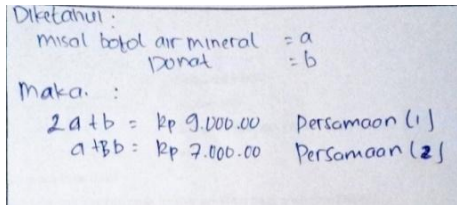 Diketahui :
misal botol air mineral = a
Donat = b
Maka. :
2a + b = Rp 9.000.00 Persamaan (1)
a + 3b = Rp 7.000.00 Persamaan (2)